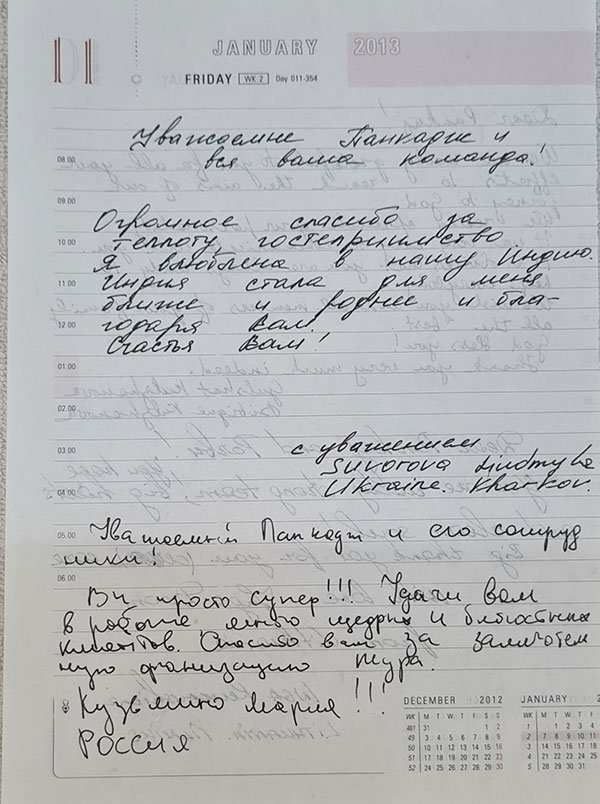 01
JANUARY 2013
FRIDAY WK 2 Day 011-354
Уважаемые Панкадж и
08.00 вся ваша команда!
09.00
Огромное спасибо за
10.00 теплоту гостеприимство
Я влюблена в нашу Индию.
11.00 Индия стала для меня
ближе и роднее и бла-
12.00 годаря вам.
Счастья вам!
01.00
02.00
03.00 с уважением
Suvorova Liudmyla
04.00 Ukraine. Kharkov.
05.00 Уважаемый Панкадж и его сотруд
ники!
06.00
Вы просто супер!!! Удачи вам
в работе много щедрых и
клиентов. Спасибо вам за замечатель
ную организацию тура.
Кузьмина Мария!!!
Россия
DECEMBER 2012
WK M T W T F S S
49 3 4 5 6 7 8 9
50 10 11 12 13 14 15 16
51 17 18 19 20 21 22 23
52 24 25 26 27 28 29 30
JANUARY
WK M T W T F
1 1 2 3 4
2 7 8 9 10 11
3 14 15 16 17 18
4 21 22 23 24 25
5 28 29 30 31